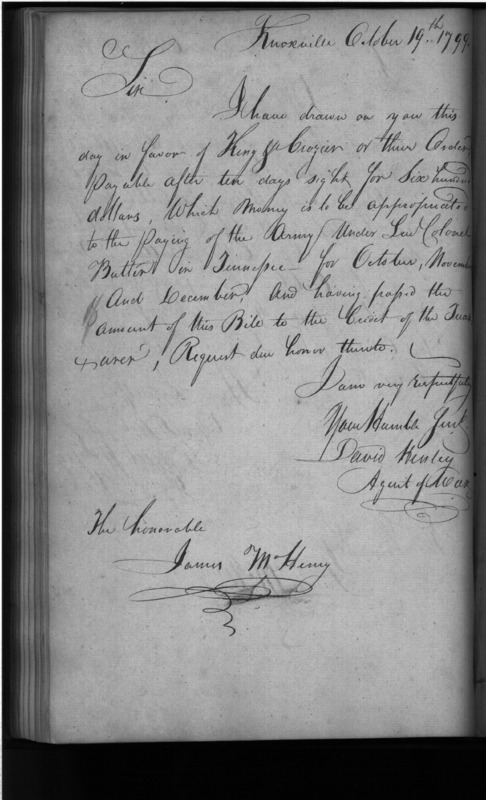 Knoxville October 19th 1799
Sir
I have drawn on you this
day in favor of King & Crozier or their Order
Payable after ten days sight, for Six hundred
dollars, Which Money is to be appropriated
to the Paying of the Army Under Lieu Colonel
Butler in Tennessee - for October, Novem
And December, And having passed the
amount of this Bill to the Credit of the Trea
surer, Request due honor thereto.
I am very respectfully
Your Humble Servt
David Henley
Agent of War
The honorable
James McHenry